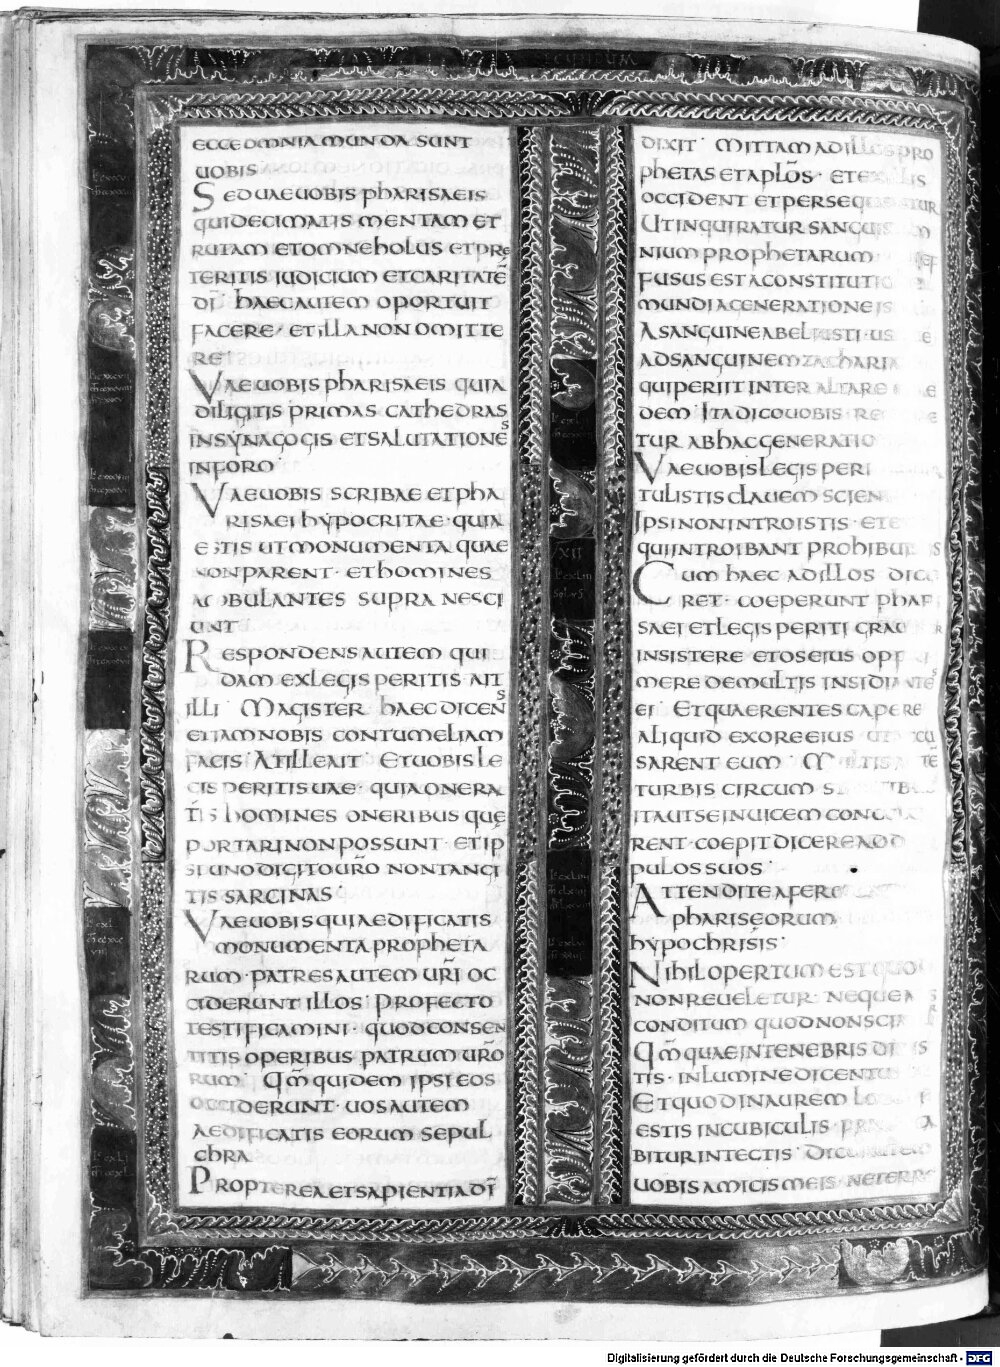 ECCE OMNIA MUNDA SUNT
UOBIS
SED UAE UOBIS PHARISAEIS
QUI DECIMATIS MENTAM ET
RUTAM ET OMNE HOLUS ET PRE
TERITIS IUDICIUM ET CARITATĒ
DĪ· HAEC AUTEM OPORTUIT
FACERE· ET ILLA NON OMITTE
RE
UAE UOBIS PHARISAEIS QUIA
DILIGITIS PRIMAS CATHEDRAS
IN SYNAGOGIS ET SALUTATIONES
IN FORO
UAE UOBIS SCRIBAE ET PHA
RISAEI HYPOCRITAE· QUIA
ESTIS UT MONUMENTA QUAE
NON PARENT· ET HOMINES
AMBULANTES SUPRA NESCI
UNT
RESPONDENS AUTEM QUI
DAM EX LEGIS PERITIS AIT
ILLI· MAGISTER HAEC DICENS
ETIAM NOBIS CONTUMELIAM
FACIS· AT ILLE AIT· ET UOBIS LE
GIS PERITIS UAE· QUIA ONERA
TIS HOMINES ONERIBUS QUĘ
PORTARI NON POSSUNT· ET IP
SI UNO DIGITO UR̄O NON TANGI
TIS SARCINAS·
UAE UOBIS QUI AEDIFICATIS
MONUMENTA PROPHETA
RUM· PATRES AUTEM UR̄I OC
CIDERUNT ILLOS· PROFECTO
TESTIFICAMINI· QUOD CONSEN
TITIS OPERIBUS PATRUM UR̄O
RUM· QM̄ QUIDEM IPSI EOS
OCCIDERUNT· UOS AUTEM
AEDIFICATIS EORUM SEPUL
CHRA
PROPTEREA ET SAPIENTIA DĪ
DIXIT· MITTAM AD ILLOS PRO
PHETAS ET APLŌS· ET EX ILLIS
OCCIDENT ET PERSEQUENTUR
UT INQUIRATUR SANGUIS
NIUM PROPHETARUM
FUSUS EST A CONSTITUTIO
MUNDI A GENERATIONE IS
A SANGUINE ABEL IUSTI· US
AD SANGUINEM ZACHARIA
QUI PERIIT INTER ALTARE
DEM· ITA DICO UOBIS· RE
TUR AB HAC GENERATIO
UAE UOBIS LEGIS PERI
TULISTIS CLAUEM SCIEN
IPSI NON INTROISTIS· ET E
QUI INTROIBANT PROHIBUIS
CUM HAEC AD ILLOS DICE
RET· COEPERUNT PHARI
SAEI ET LEGIS PERITI GRAU
INSISTERE ET OS EIUS OPPRI
MERE DE MULTIS INSIDIANTES
EI· ET QUAERENTES CAPERE
ALIQUID EX ORE EIUS· UT ACCU
SARENT EUM· MULTIS AUTĒ
TURBIS CIRCUM STANTIBUS
ITA UT SE INUICEM CONCULCA
RENT· COEPIT DICERE AD DISCI
PULOS SUOS·
ATTENDITE A FERMENTO
PHARISEORUM·
HYPOCHRISIS·
NIHIL OPERTUM EST QUOD
NON REUELETUR· NEQUE A
CONDITUM QUOD NON SCIA
QM̄ QUAE IN TENEBRIS DIXIS
TIS· IN LUMINE DICENTUR
ET QUOD IN AUREM LO
ESTIS IN CUBICULIS· PRAEDICA
BITUR IN TECTIS· DICO AUTEM
UOBIS AMICIS MEIS· NE TERRE
Digitalisierung gefördert durch die Deutsche Forschungsgemeinschaft - DFG